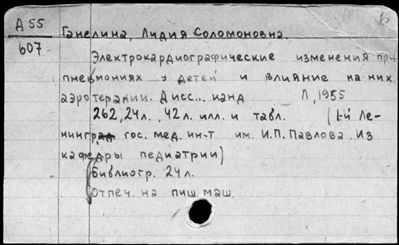 А 55
607
Ганелина, Лидия Соломоновна.
Электрокардиографические изменения при
пневмониях у детей и влияние на них
аэротерапии. Дисс... канд Л, 1955
262, 24л., 42л. илл. и табл. (1-й Ле-
нинград гос. мед. ин-т им. И.П. Павлова. Из
кафедры педиатрии)
(Библиогр. 24л.
Отпеч. на пиш. маш.